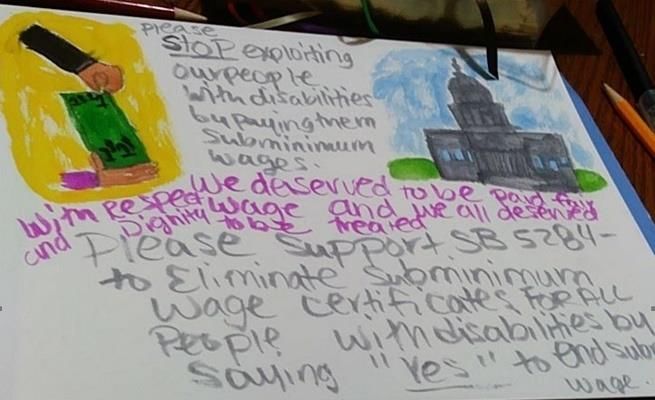 please
STOP exploiting
our people
with disabilities
by paying them
Subminimum
wages.
We deserved to be paid fair
with Respect wage and we all deserved
and Dignity to be treated
Please Support SB 5284-
to Eliminate Subminimum
wage certificates FOR ALL
People with disabilities by
Saying "Yes" to end subm
wage.